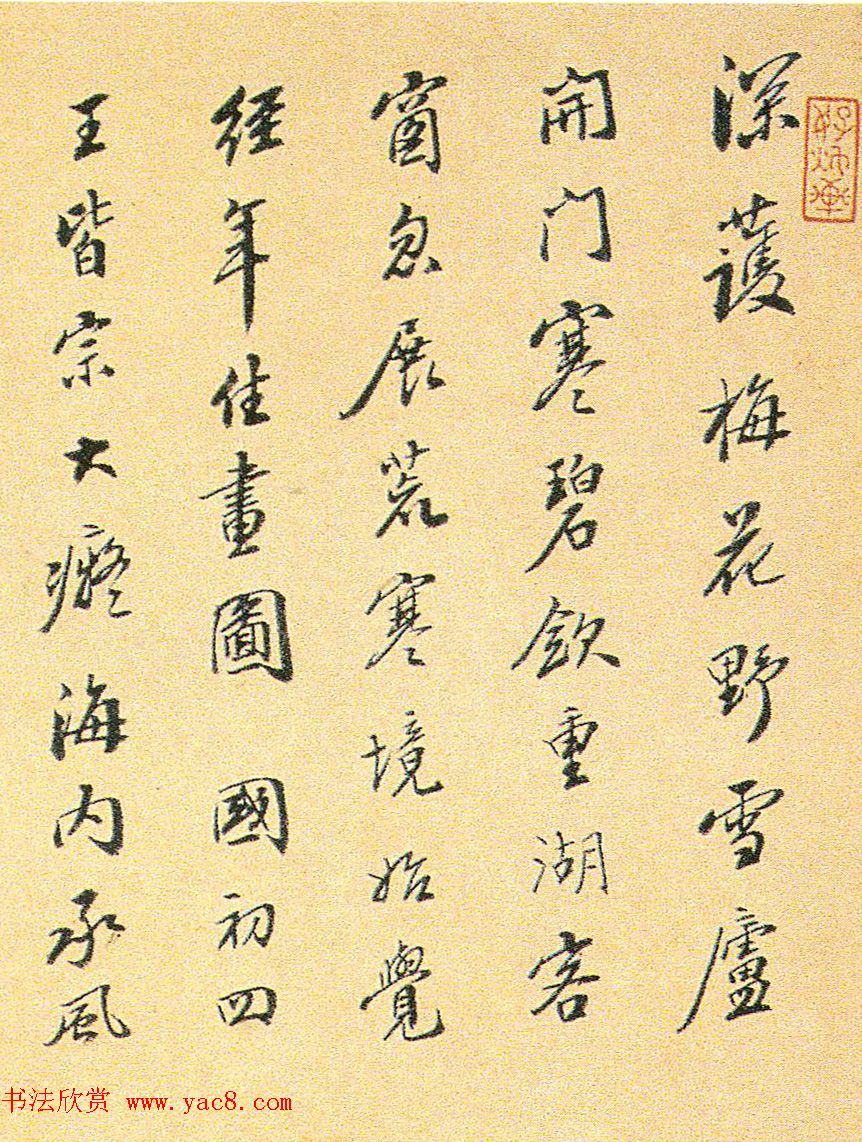 深護梅花野雪廬
開门寒碧重湖客
窗忽展荒寒境始覺
經年住畫圖 國初四
王皆宗大癡海内承風
书法欣赏 www.yac8.com